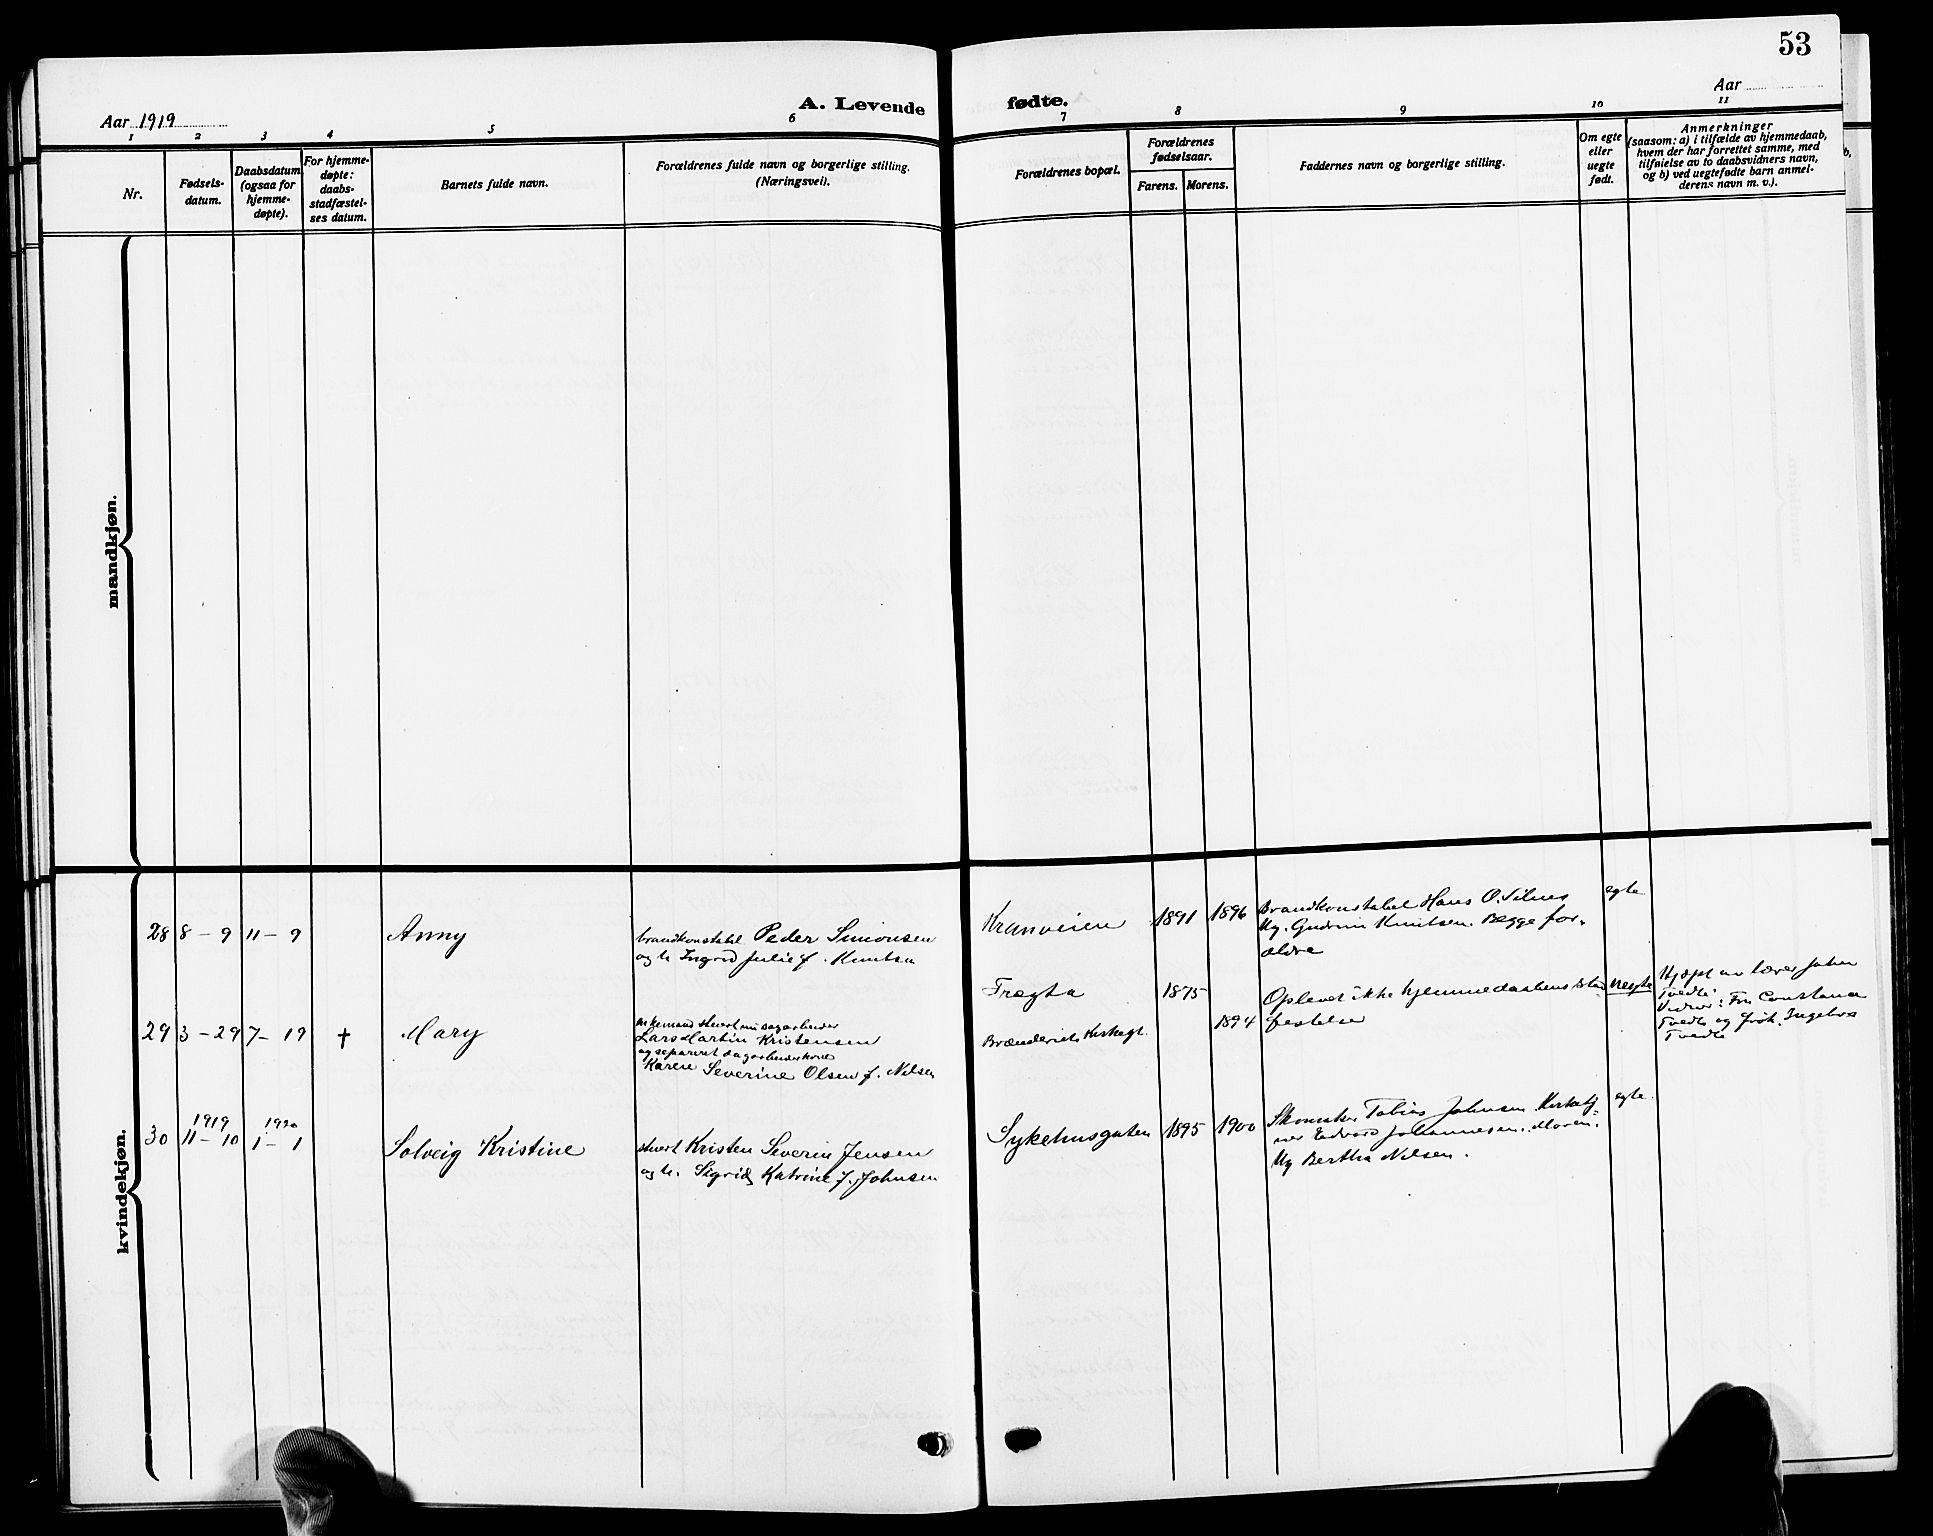 53
Aar 1919
A. Levende
fødte.
Aar
1 2 3 4 5 6 7 8 9 10 11
Nr.
Fødsels-
datum.
Daabsdatum
(ogsaa for
hjemme-
døpte).
For hjemme-
døpte:
daabs-
stadfæstel-
ses datum.
Barnets fulde navn.
Forældrenes fulde navn og borgerlige stilling.
(Næringsvei).
Forældrenes bopæl.
Forældrenes
fødselsaar.
Farens. Morens.
Faddernes navn og borgerlige stilling.
Om egte
eller
uegte
født.
Anmerkninger
(saasom: a) i tilfælde av hjemmedaab,
hvem der har forrettet samme, med
tilføielse av to daabsvidners navn,
og b) ved uegtefødte barn anmel-
derens navn m. v.).
mandkjøn.
kvindekjøn.
28 8-9 11-9
Anny
brandkonstabel Peder Simonsen
og h. Ingrid Julie f. Knutsen
Kranveien
1891 1896
Brandkonstabel Hans O.
Ug. Gudrun Knutsen. Begge for-
ældre
egte
29 3-29 7-19 †
Mary
Lars Martin Kristensen
og separeret
Karen Severine Olsen f. Nilsen
Trægta
1875
1894
Oplevet ikke hjemmedaabens stad
festelse
uegte
Hjdpt av lærer Johan
Tvedte
Vidner: Fru Constance
Tvedte og frøk. Ingeborg
Tvedte
30 1919 11-10 1920 1-1
Solveig Kristine
stuert Kristen Severin Jensen
og h. Sigrid Katrine f. Johnsen
Sykehusgaten
1895 1900
Skomaker Tobias Johnsen.
Edvard Johannesen. Moren.
Ug Bertha Nilsen.
egte.